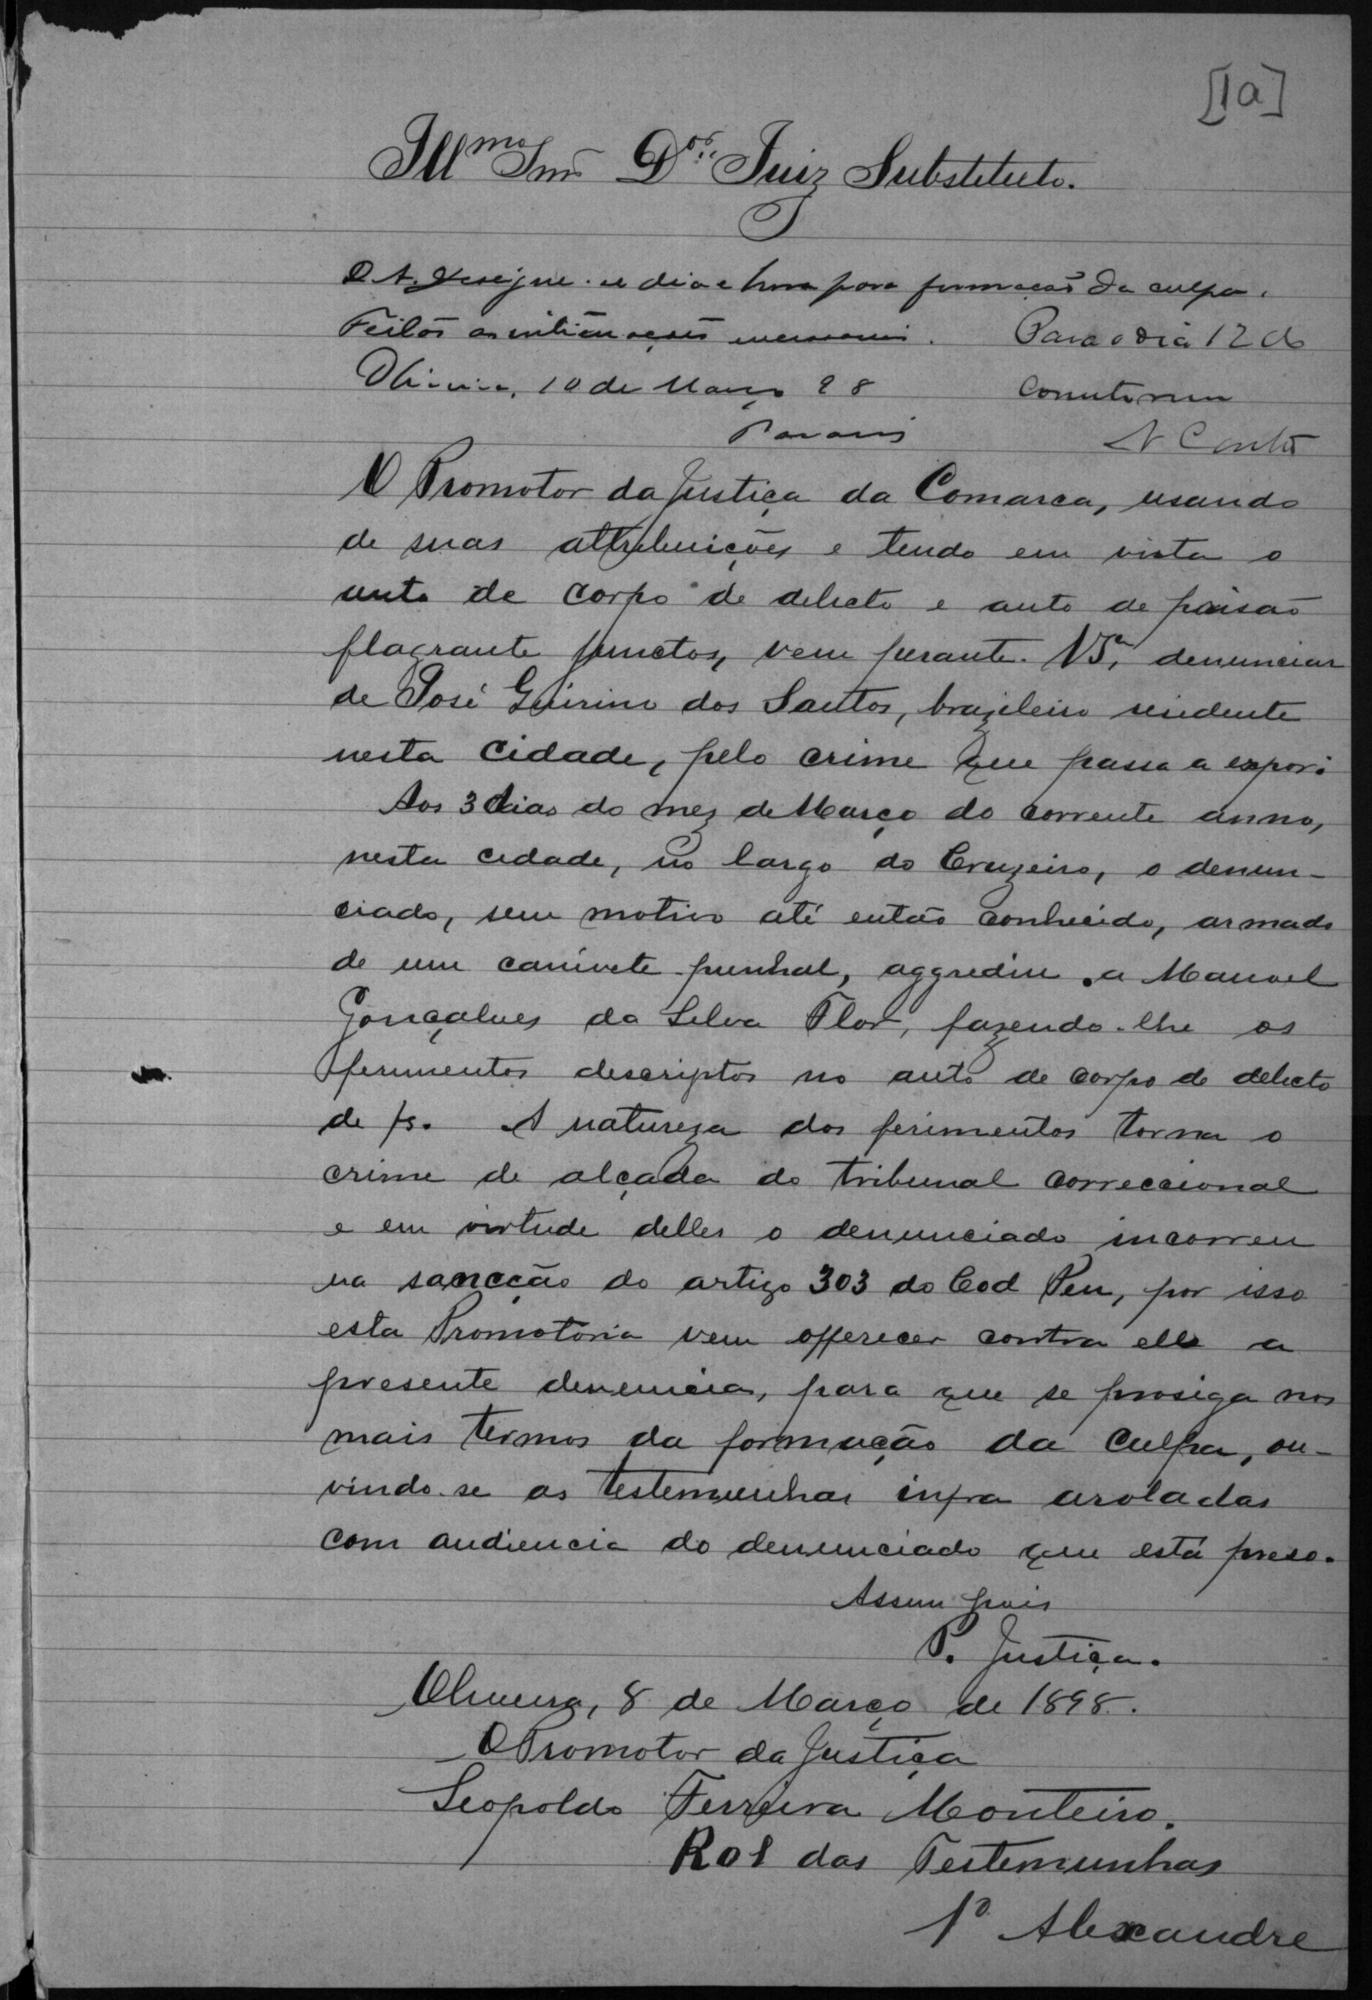 [1a]
Illmo Snr Dor Juiz Substituto.
D. A. Designe-se dia e hora para formação da culpa.
Feitas as intimações necessarias. Para o dia 12 do
Oliveira, 10 de Março 98 corrente
N Couto
O Promotor da Justiça da Comarca, usando
de suas attribuições e tendo em vista o
auto de corpo de delicto e auto de prisão
flagrante junctos, vem perante VSª, denunciar
de José Guirino dos Santos, brazileiro residente
nesta cidade, pelo crime que passa a expor:
Aos 3 dias do mez de Março do corrente anno,
nesta cidade, no largo do Cruzeiro, o denun-
ciado, sem motivo até então conhecido, armado
de um canivete punhal, aggrediu a Manoel
Gonçalves da Silva Flor, fazendo-lhe os
ferimentos descriptos no auto de corpo de delicto
de fs. A natureza dos ferimentos torna o
crime de alçada do tribunal correccional
e em virtude delles o denunciado incorreu
na sancção do artigo 303 do Cod Pen, por isso
esta Promotoria vem offerecer contra elle a
presente denuncia, para que se prosiga nos
mais termos da formação da culpa, ou-
vindo-se as testemunhas infra aroladas
com audiencia do denunciado que está preso.
Assim pois
P. Justiça.
Oliveira, 8 de Março de 1898.
O Promotor da Justiça
Leopoldo Ferreira Monteiro.
Rol das Testemunhas
1º Alexandre